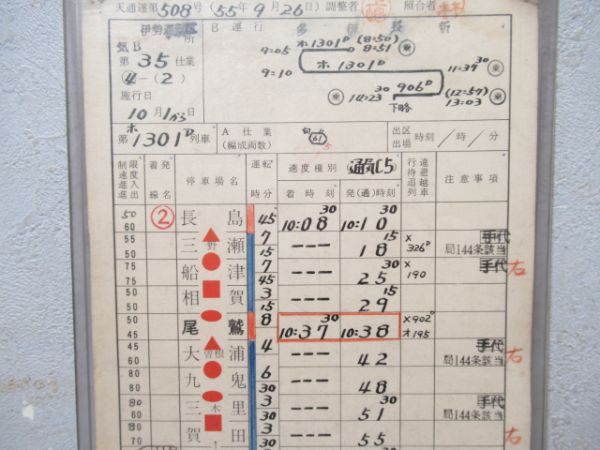 天通達第508号(55年9月26日)調整者 照合者
伊勢運転区所 B 運行
気B
第35仕業
④-(2)
施行日
10月1から日
9:05 ホ1301ᴰ (8:50) 8:51
ホ1301ᴰ 11:39 30
9:10
906ᴰ (12:57)
14:23 30 下略 13:03
第ホ1301ᴰ列車 A 仕業 (編成両数) 61 出区 出場 時刻 /時/分
制限速度 進入 進出 着発線名 停車場名 運転時分 速度種別 通気C5 着時刻 発(通)時刻 行違 待避 追越 列車 注意事項
50 60 ② 長島 45 10:08 30 10:10 30
55 55 三野瀬 7 15 --- 18 15 × 326ᴰ 手代 局144条該当
75 75 船津 7 45 --- 25 30 × 190 右
45 45 相賀 3 15 --- 29 15
50 45 尾鷲 8 10:37 30 10:38 30 ×902ᴰ オ195
40 40 大曽根浦 4 --- 42 手代 局144条該当 右
60 60 九鬼 6 30 --- 48
80 60 三木里 3 30 --- 51 手代 局144条該当
80 70 賀田 3 30 --- 55 右